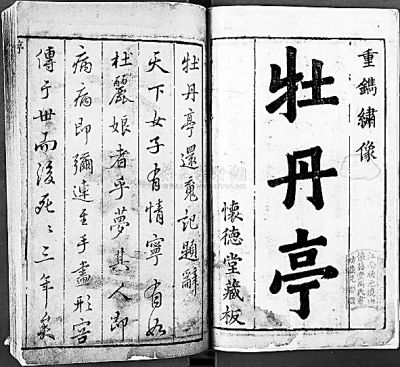 重鐫繡像
牡丹亭
懷德堂藏板
牡丹亭還魂記題辭
天下女子有情寧有如
杜麗娘者乎夢其人即
病病即彌連至手畫形容
傳于世而後死死三年矣
序